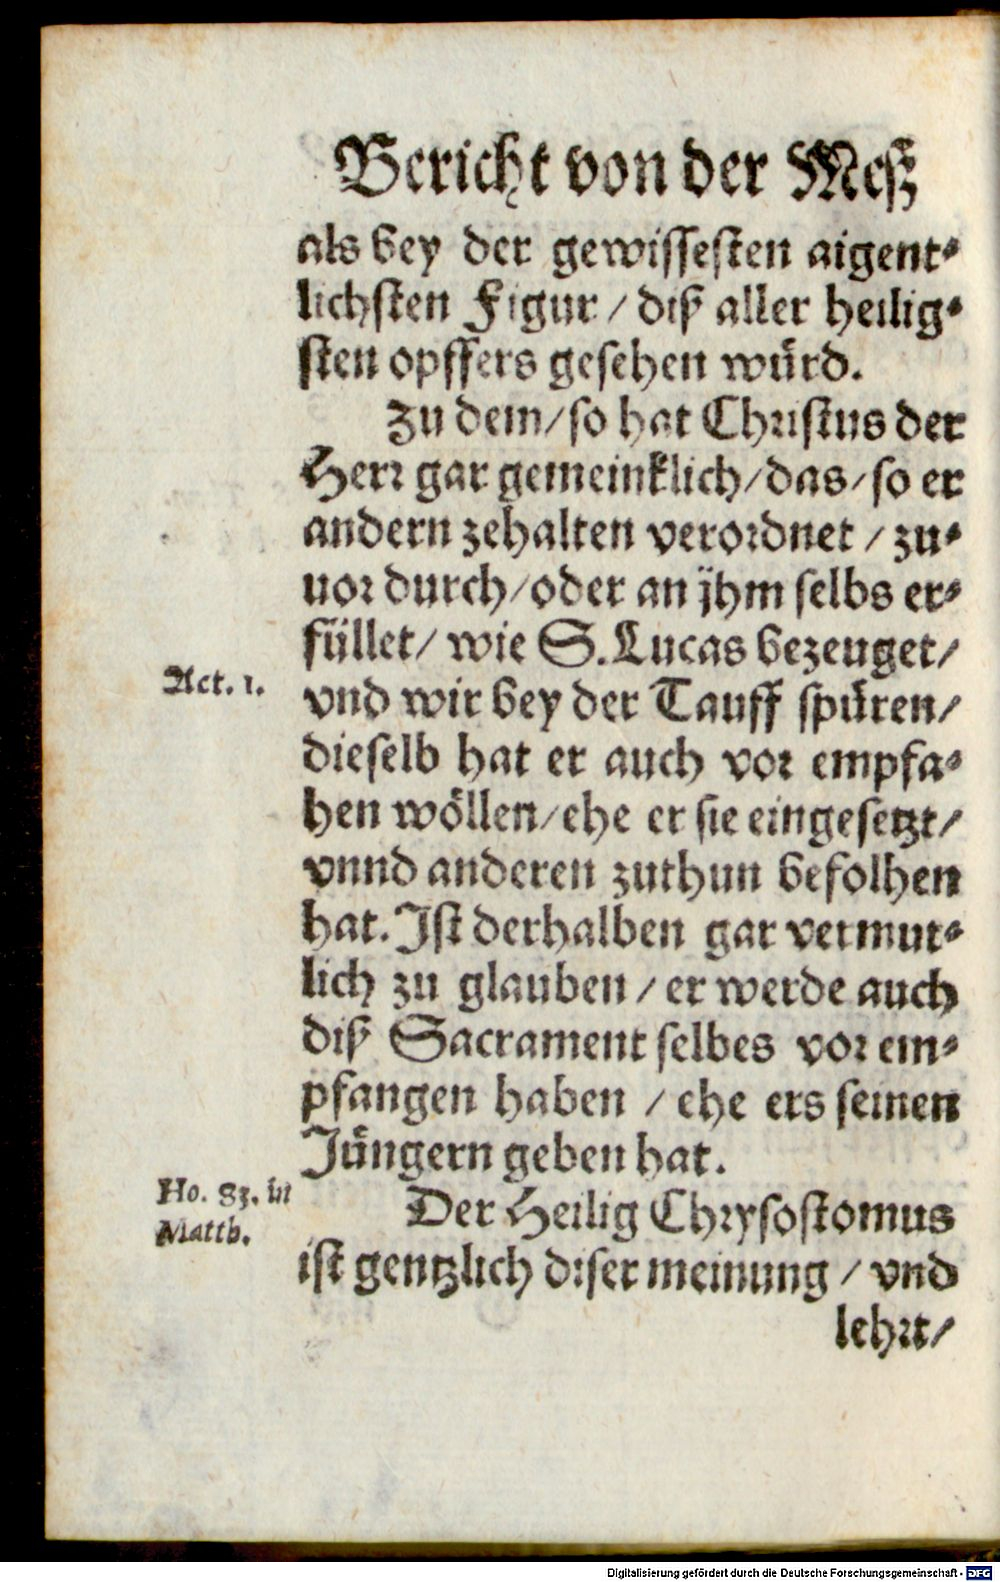 Bericht von der Meß
als bey der gewissesten aigent-
lichsten Figur / diß aller heilig-
sten opffers gesehen würd.
Zu dem / so hat Christus der
Herr gar gemeinklich / das / so er
andern zehalten verordnet / zu-
uor durch / oder an jhm selbs er-
füllet / wie S. Lucas bezeuget /
Act. 1.
vnd wir bey der Tauff spüren /
dieselb hat er auch vor empfa-
hen wöllen / ehe er sie eingesetzt /
vnnd anderen zuthun befolhen
hat. Ist derhalben gar vermut-
lich zu glauben / er werde auch
diß Sacrament selbes vor em-
pfangen haben / ehe ers seinen
Jüngern geben hat.
Ho. 83. in
Matth.
Der Heilig Chrysostomus
ist gentzlich diser meinung / vnd
lehrt /
Digitalisierung gefördert durch die Deutsche Forschungsgemeinschaft - DFG